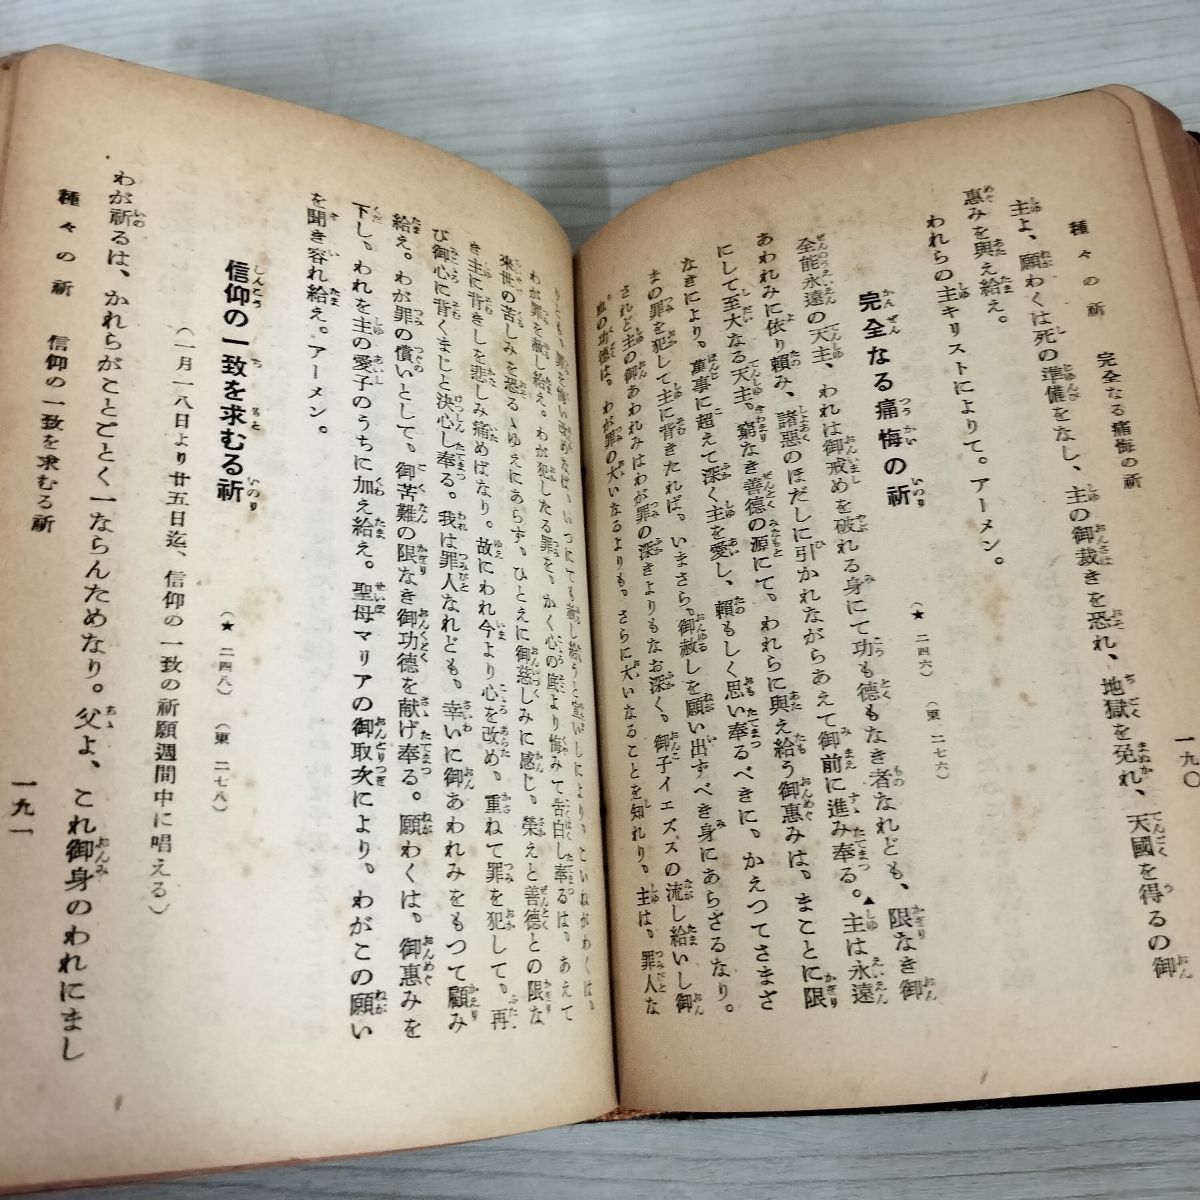 種々の祈　完全なる痛悔の祈
一九〇
主よ、願わくは死の準備をなし、主の御裁きを恐れ、地獄を免れ、天國を得るの御
惠みを與え給え。
われらの主キリストによりて。アーメン。
完全なる痛悔の祈
（★ 二四六）（東 二七六）
全能永遠の天主、われは御戒めを破れる身にて功も德もなき者なれども、限なき御
あわれみに依り頼み、諸惡のほだしに引かれながらあえて御前に進み奉る。▲主は永遠
にして至大なる天主。窮なき善德の源にて、われらに與え給う御惠みは、まことに限
なきにより。萬事に超えて深く主を愛し、頼もしく思い奉るべきに、かえつてさまざ
まの罪を犯して主に背きたれば。いまさら、御赦しを願い出ずべき身にあらざるなり。
されど主の御あわれみはわが罪の深きよりもなお深く。御子イエズスの流し給いし御
血の功德は。わが罪の大いなるよりも。さらに大いなることを知れり。主は。罪人な
りとも。罪を悔い改めなば。いつにても赦し給うと宣いしにより。こいねがわくは。
わが罪を赦し給え。わが犯したる罪を、かく心の底より悔みて告白し奉るは。あえて
來世の苦しみを恐るゝゆえにあらず。ひとえに御慈しみに感じ。榮えと善德との限な
き主に背きしを悲しみ痛めばなり。故にわれ今より心を改め、重ねて罪を犯して。再
び御心に背くまじと決心し奉る。我は罪人なれども。幸いに御あわれみをもつて顧み
給え。わが罪の償いとして、御苦難の限なき御功德を献げ奉る。願わくは、御惠みを
下し、われを主の愛子のうちに加え給え。聖母マリアの御取次により。わがこの願い
を聞き容れ給え。アーメン。
信仰の一致を求むる祈
（★ 二四八）（東 二七八）
（一月一八日より廿五日迄、信仰の一致の祈願週間中に唱える）
わが祈るは、かれらがことごとく一ならんためなり。父よ、これ御身のわれにまし
種々の祈　信仰の一致を求むる祈
一九一